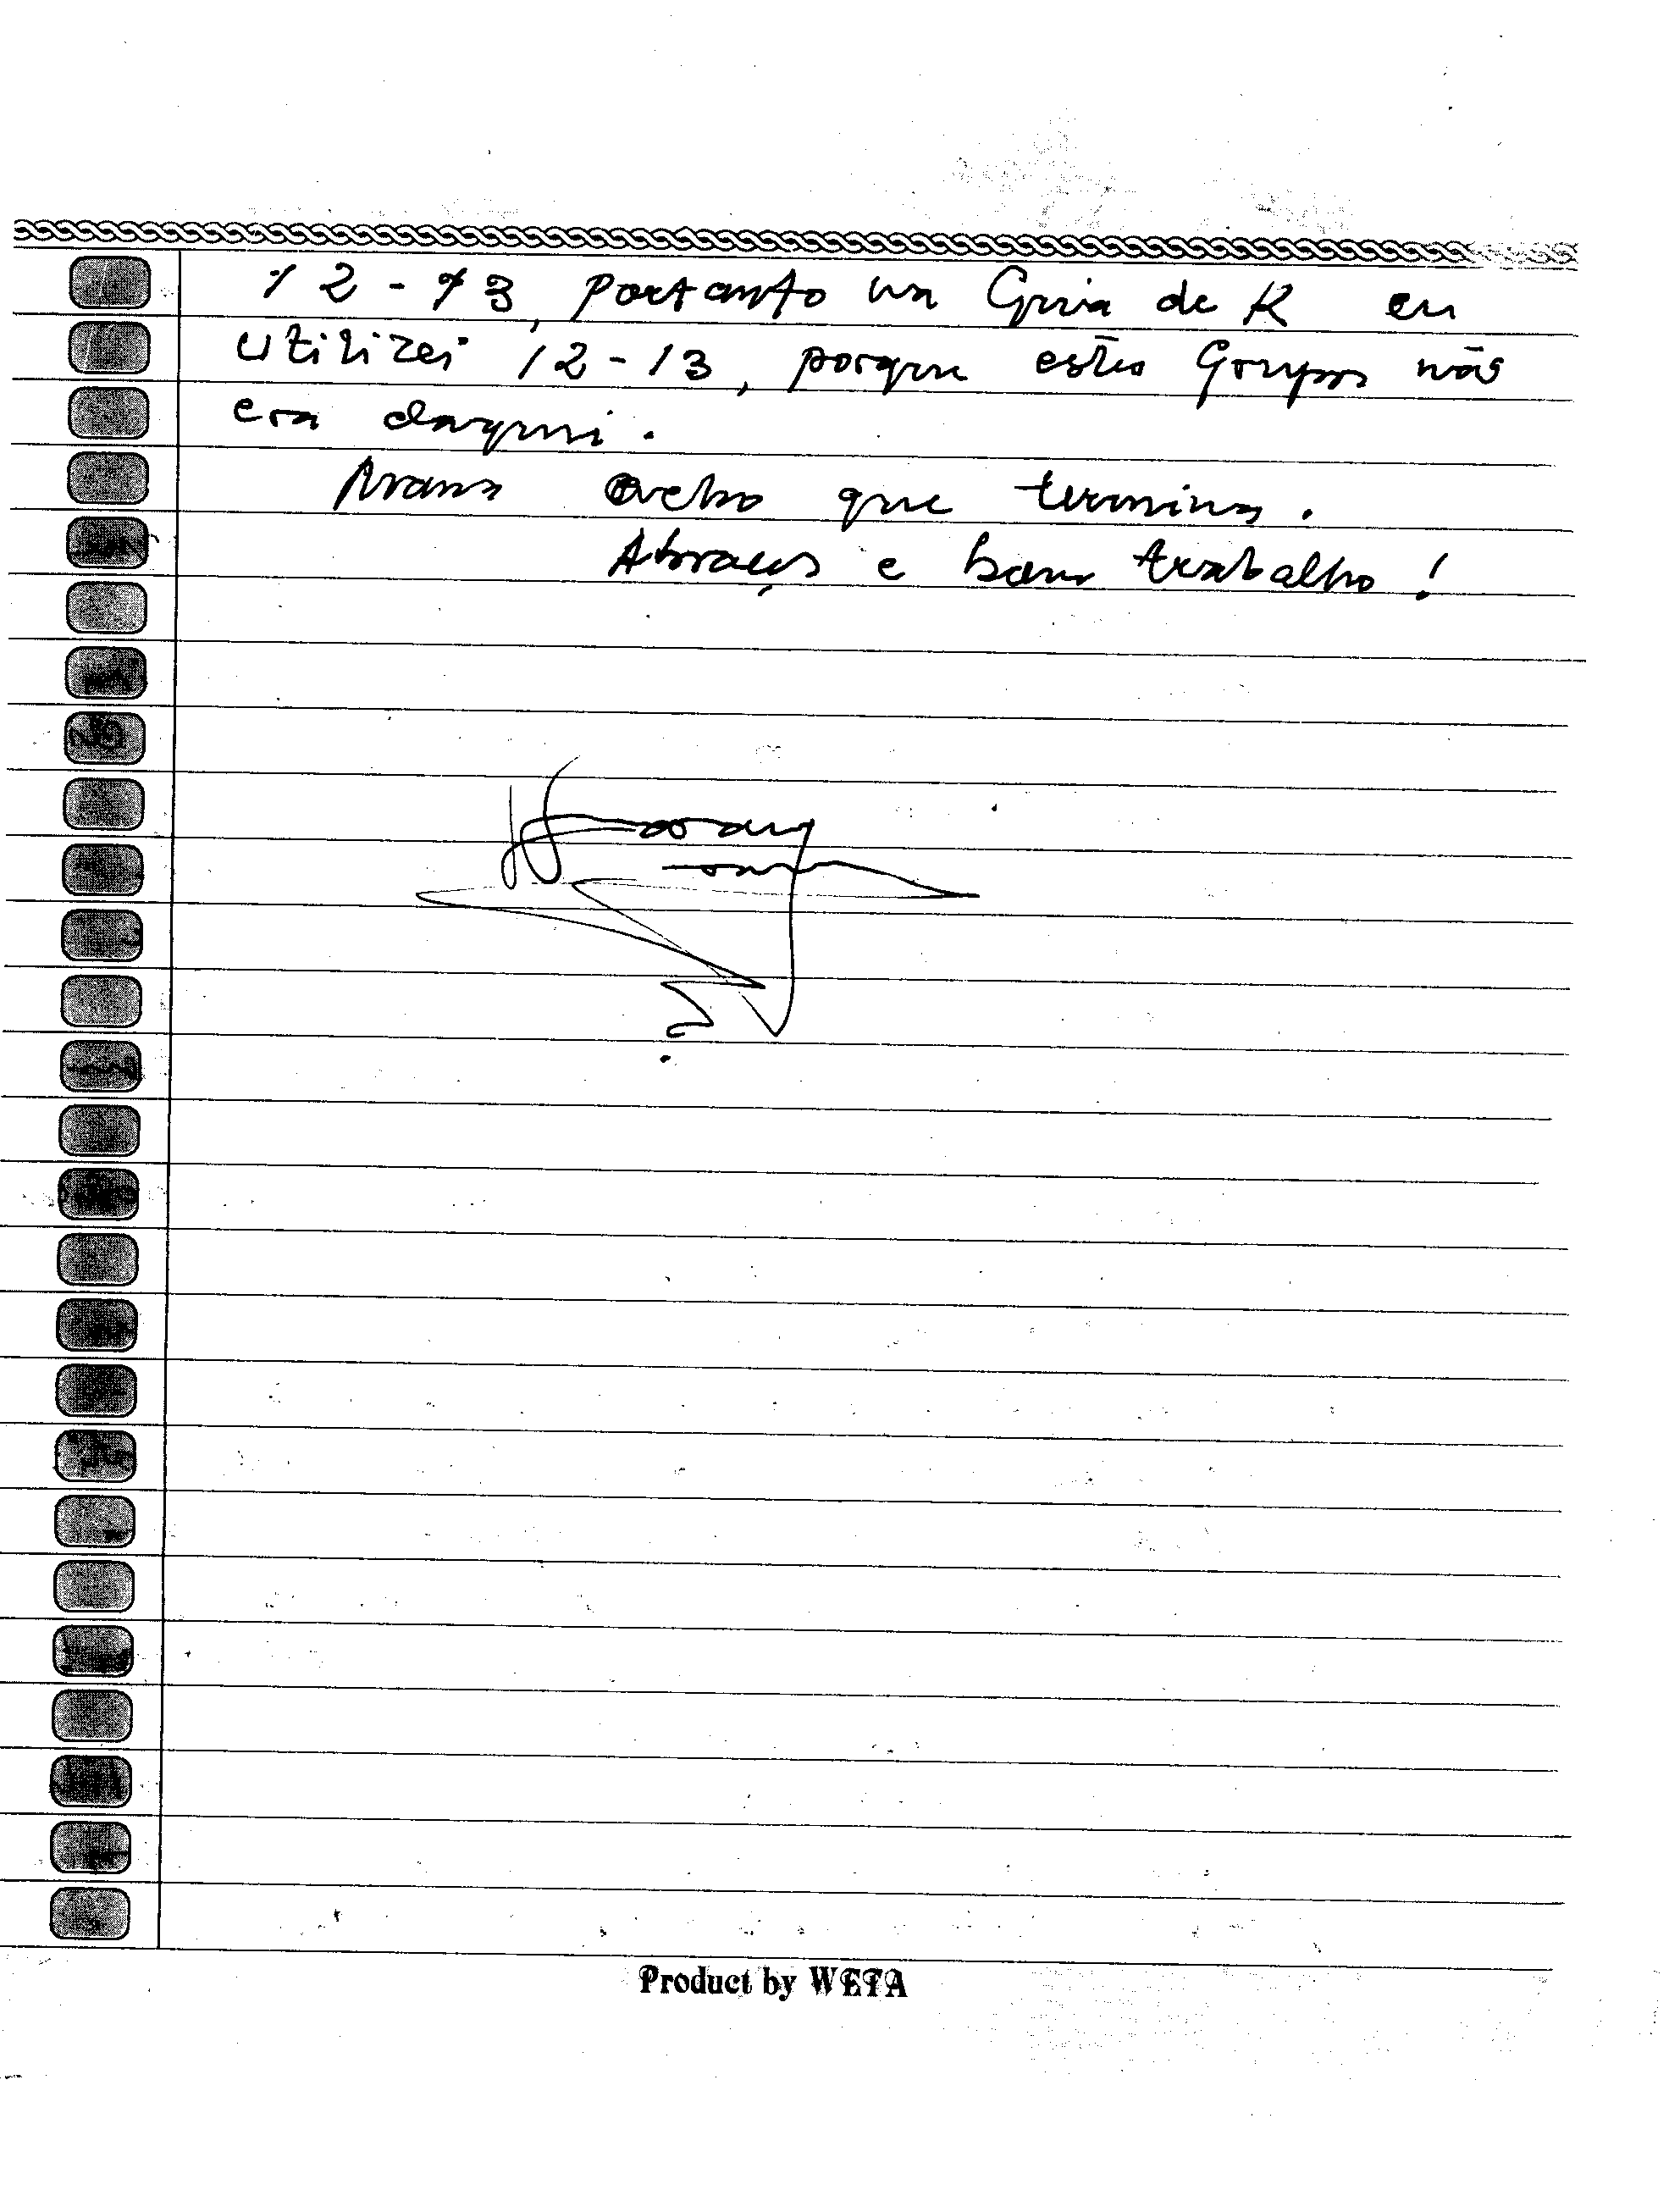 12-13, portanto na Guia de R eu
utilizei 12-13, porque estes Grupos não
era daqui.
acho que termina.
Abraços e bom trabalho!
Product by WETA